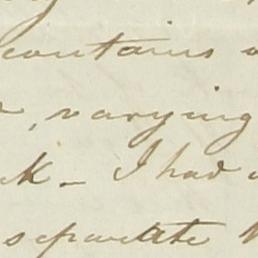 contains
, varying
k - I had
separate